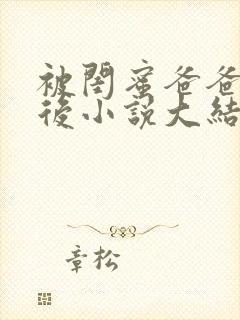 被閨蜜爸爸
後小說大結
章松